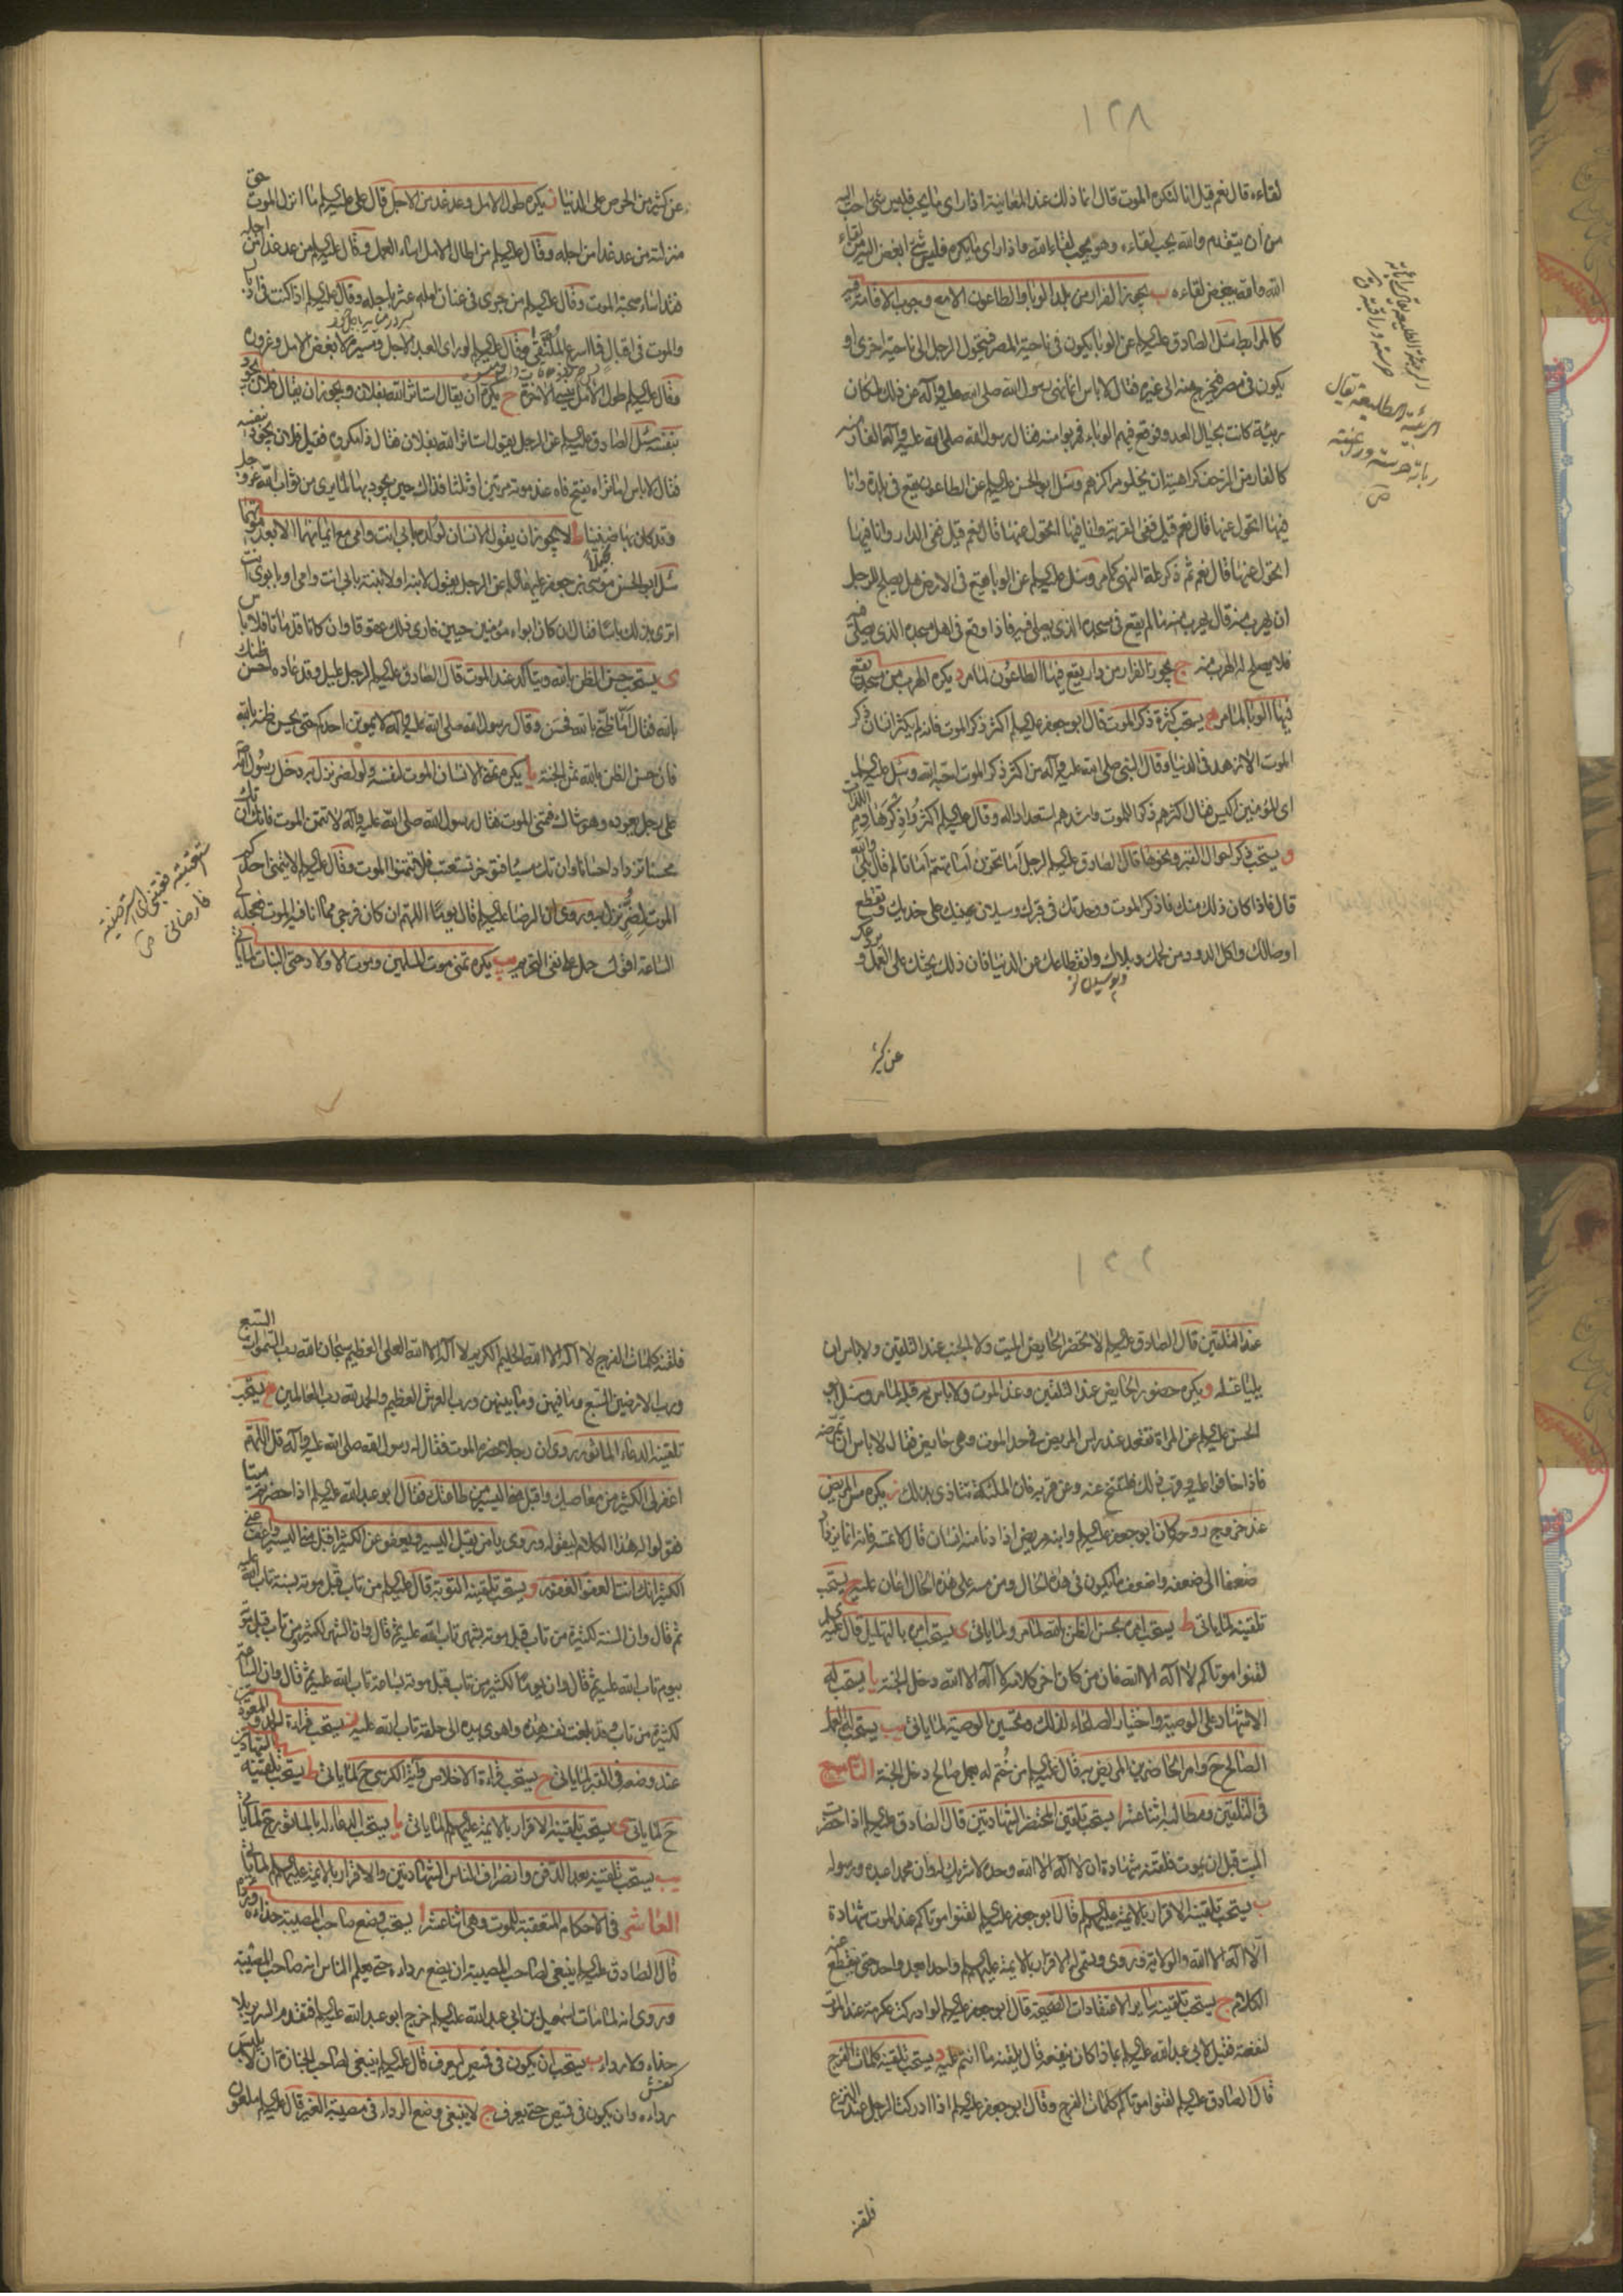 ١٢٨
لقاءه قال نعم قيل انا لنكره الموت قال انما ذلك عند المعاينة اذا راى ما يحب فليس شئ احب اليه
من ان يتقدم والله يحب لقاءه وهو يحب لقاء الله واذا راى ما يكره فليس شئ ابغض اليه من لقاء
الله والله يبغض لقاءه ب يجوز الفرار من بلد الوبا والطاعون الا مع وجوب الاقامة فيه
كالمرابط سئل الصادق عليه السلام عن الوبا يكون في ناحية المصر فيتحول الرجل الى ناحية اخرى او
يكون في مصر فيخرج منه الى غيره فقال لا باس انما نهى رسول الله صلى الله عليه وآله عن ذلك لمكان
ربيئة كانت بحيال العدو فوقع فيهم الوباء فهربوا منه فقال رسول الله صلى الله عليه وآله الفار منه
كالفار من الزحف كراهية ان يخلو مراكزهم وسئل ابو الحسن عليه السلام عن الطاعون يقع في بلدة وانا
فيها اتحول عنها قال نعم قيل ففي القرية وانا فيها اتحول عنها قال نعم قيل ففي الدار وانا فيها
اتحول عنها قال نعم ثم ذكر علة النهي كما مر وسئل عليه السلام عن الوبا يقع في الارض هل يصلح للرجل
ان يهرب منه قال يهرب منه ما لم يقع في مسجده الذي يصلي فيه فاذا وقع في اهل مسجده الذي يصلي فيه
فلا يصلح له الهرب منه ج يجوز الفرار من دار يقع فيها الطاعون لما مر د يكره الهرب من مسجد يقع
فيها الوبا لما مر ه يستحب كثرة ذكر الموت قال ابو جعفر عليه السلام اكثر ذكر الموت فانه لم يكثر انسان ذكر
الموت الا زهد في الدنيا وقال النبي صلى الله عليه وآله من اكثر ذكر الموت احبه الله وسئل عليه السلام
اي المؤمنين اكيس فقال اكثرهم ذكرا للموت واشدهم استعدادا له وقال عليه السلام اكثروا ذكر هادم اللذات
و يستحب ذكر احوال القبر ونحوها قال الصادق عليه السلام لرجل اما تحزن اما تهتم اما تالم قال بلى والله
قال فاذا كان ذلك منك فاذكر الموت ووحدتك في قبرك وسيلان عينيك على خديك وتقطع
اوصالك واكل الدود من لحمك وبلاك وانقطاعك من الدنيا فان ذلك يحثك على العمل ويردعك
عن كثير
عن كثير من الحرص على الدنيا ز يكره طول الامل وعد غد من الاجل قال علي عليه السلام ما انزل الموت حق
منزلته من عد غدا من اجله وقال عليه السلام من اطال الامل اساء العمل وقال عليه السلام من عد غدا من اجله
فقد اساء صحبة الموت وقال عليه السلام من جرى في عنان امله عثر باجله وقال عليه السلام اذا كنت في ادبار
والموت في اقبال فما اسرع الملتقى وقال عليه السلام لو راى العبد الاجل ومسيره لا بغض الامل وغروره
وقال عليه السلام طول الامل ينسي الاخرة ح يكره ان يقال استاثر الله بفلان ويجوز ان يقال فلان يجود
بنفسه سئل الصادق عليه السلام عن الرجل يقول استاثر الله بفلان فقال ذا مكروه فقيل فلان يجود بنفسه
فقال لا باس اما تراه يفتح فاه عند موته مرتين او ثلثا فذلك حين يجود بها لما يرى من ثواب الله عز وجل
وقد كان بها ضنينا ط لا يجوز ان يقول الانسان لولده بابي انت وامي مع ايمانهما الا بعد موتهما
سئل ابو الحسن موسى بن جعفر عليهما السلام عن الرجل يقول لابنه او لابنته بابي انت وامي او بابوي انت
اترى بذلك باسا فقال ان كان ابواه مؤمنين حيين فارى ذلك عقوقا وان كانا قد ماتا فلا باس
ى يستحب حسن الظن بالله ويتاكد عند الموت قال الصادق عليه السلام لرجل عليل وقد عاده احسن ظنك
بالله فقال اما ظني بالله فحسن وقال رسول الله صلى الله عليه وآله لا يموتن احدكم حتى يحسن ظنه بالله
فان حسن الظن بالله ثمن الجنة يا يكره تمني الانسان الموت لنفسه ولو لضر نزل به دخل رسول الله
على رجل يعوده وهو شاك فتمنى الموت فقال رسول الله صلى الله عليه وآله لا تتمن الموت فانك ان تك
محسنا تزداد احسانا وان تك مسيئا فتؤخر تستعتب فلا تتمنوا الموت وقال عليه السلام لا يتمنى احدكم
الموت لضر نزل به وروى ان الرضا عليه السلام قال يوما اللهم ان كان فرجي مما انا فيه بالموت فعجله لي
الساعة اقول حمل على نفي التحريم يب يكره تمني موت المسلمين وموت الاولاد حتى البنات لما ياتي
عند التلقين قال الصادق عليه السلام لا تحضر الحايض الميت ولا الجنب عند التلقين ولا باس ان
يليا غسله و يكره حضور الحايض عند التلقين وعند الموت ولا باس به قبله لما مر وسئل ابو
الحسن عليه السلام عن المراة تقعد عند راس المريض في حد الموت وهي حايض فقال لا باس ان تمرضه
فاذا خافوا عليه وقرب ذلك فلتنح عنه وعن قربه فان الملئكة تتاذى بذلك ز يكره مس المريض
عند خروج روحه كان ابو جعفر عليه السلام وابنه مريض اذا دنا منه انسان قال لا تمسه فانه انما يزداد
ضعفا الى ضعفه واضعف ما يكون في هذه الحال ومن مسه على هذه الحال اعان عليه ح يستحب
تلقينه لما ياتي ط يستحب امره بحسن الظن بالله لما مر ولما ياتي ى يستحب امره بالتهليل قال عليه السلام
لقنوا موتاكم لا اله الا الله فان من كان اخر كلامه لا اله الا الله دخل الجنة يا يستحب له
الاشهاد على الوصية واختيار الصلحاء لذلك وتحسين الوصية لما ياتي يب يستحب له العمل
الصالح ح وامر الحاضرين المريض به قال عليه السلام من ختم له بعمل صالح دخل الجنة التاسع
في التلقين ومطالبه اثنا عشر ا يستحب تلقين المحتضر الشهادتين قال الصادق عليه السلام اذا حضرت
الميت قبل ان يموت فلقنه شهادة ان لا اله الا الله وحده لا شريك له وان محمدا عبده ورسوله
ب يستحب تلقينه الاقرار بالائمة عليهم السلام قال ابو جعفر عليه السلام لقنوا موتاكم عند الموت شهادة
ان لا اله الا الله والولاية وروي ويسمى له الاقرار بالائمة عليهم السلام واحدا بعد واحد حتى ينقطع عنه
الكلام ج يستحب تلقينه ساير الاعتقادات الصحيحة قال ابو جعفر عليه السلام لو ادركت عكرمة عند الموت
لنفعته فقيل لابي عبد الله عليه السلام بماذا كان ينفعه قال يلقنه ما انتم عليه د يستحب تلقينه كلمات الفرج
قال الصادق عليه السلام لقنوا موتاكم كلمات الفرج وقال ابو جعفر عليه السلام اذا ادركت الرجل عند النزع
فلقنه
فلقنه كلمات الفرج لا اله الا الله الحليم الكريم لا اله الا الله العلي العظيم سبحان الله رب السموات السبع
ورب الارضين السبع وما فيهن وما بينهن ورب العرش العظيم والحمد لله رب العالمين ه يستحب
تلقينه الدعاء الماثور روي ان رجلا حضره الموت فقال له رسول الله صلى الله عليه وآله قل اللهم
اغفر لي الكثير من معاصيك واقبل مني اليسير من طاعتك فقال ابو عبد الله عليه السلام اذا حضرتم ميتا
فقولوا له هذا الكلام ليقوله وروي يا من يقبل اليسير ويعفو عن الكثير اقبل مني اليسير واعف عني
الكثير انك انت العفو الغفور و يستحب تلقينه التوبة قال عليه السلام من تاب قبل موته بسنة تاب الله عليه
ثم قال وان السنة لكثيرة من تاب قبل موته بشهر تاب الله عليه ثم قال وان الشهر لكثير من تاب قبل موته
بيوم تاب الله عليه ثم قال وان يوما لكثير من تاب قبل موته بساعة تاب الله عليه ثم قال وان الساعة
لكثيرة من تاب وقد بلغت نفسه هذه واهوى بيده الى حلقه تاب الله عليه ز يستحب قراءة الحمد والمعوذتين
عند وضعه في القبر لما ياتي ح يستحب قراءة الاخلاص وآية الكرسي ح لما ياتي ط يستحب تلقينه الشهادتين
ح لما ياتي ى يستحب تلقينه الاقرار بالائمة عليهم السلام لما ياتي يا يستحب الدعاء له بالماثور ح لما ياتي
يب يستحب تلقينه بعد الدفن وانصراف الناس الشهادتين والاقرار بالائمة عليهم السلام لما ياتي
العاشر في الاحكام المتعقبة للموت وهي اثنا عشر ا يستحب وضع صاحب المصيبة حذاءه ورداءه
قال الصادق عليه السلام ينبغي لصاحب المصيبة ان يضع رداءه حتى يعلم الناس انه صاحب المصيبة
وروي انه لما مات اسمعيل بن ابي عبد الله عليه السلام خرج ابو عبد الله عليه السلام فتقدم السرير بلا
حذاء ولا رداء ب يستحب ان يكون في قميص ليعرف قال عليه السلام ينبغي لصاحب الجنازة ان لا يلبس
رداءه وان يكون في قميص حتى يعرف ج لا ينبغي وضع الرداء في مصيبة الغير قال عليه السلام ملعون